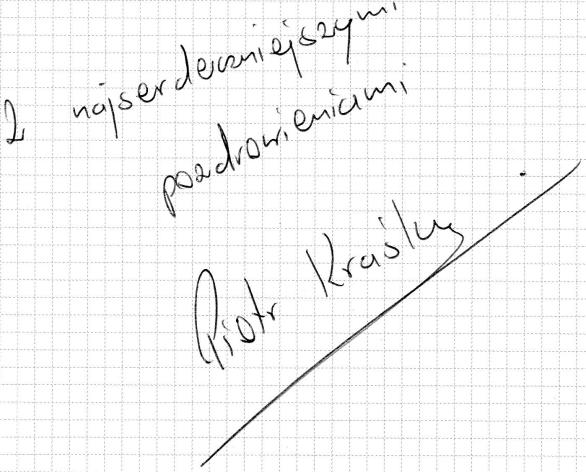 Z najserdeczniejszymi
pozdrowieniami
Piotr Kraśko